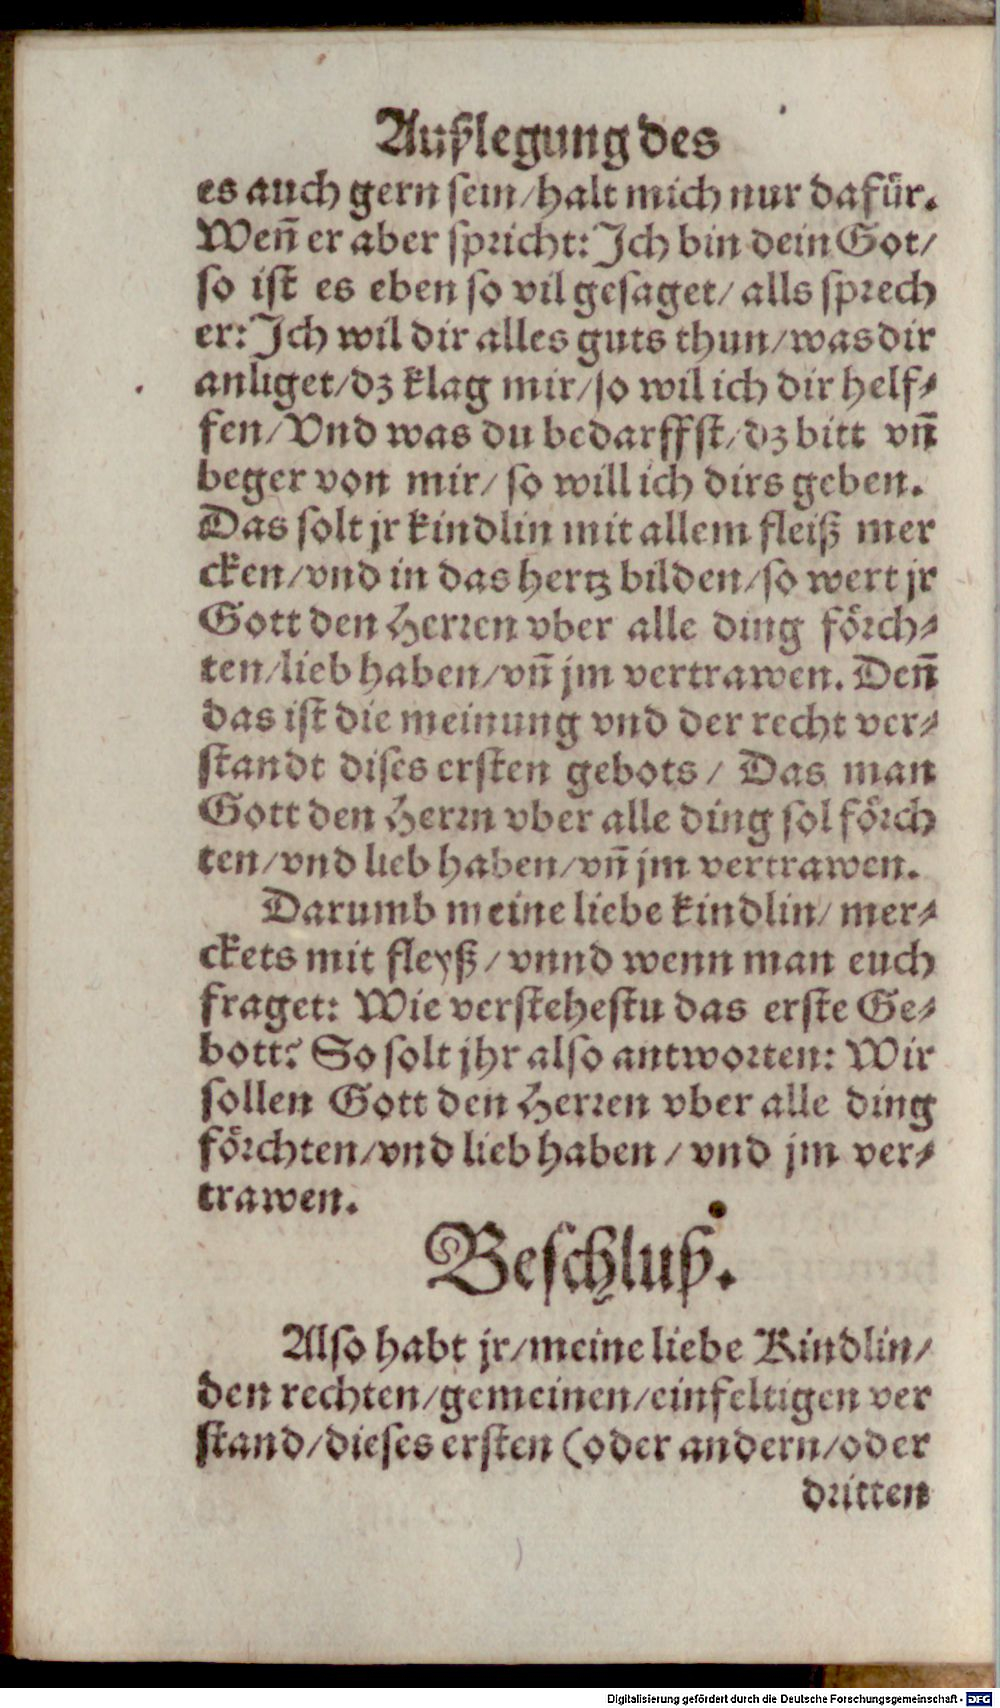 Außlegung des
es auch gern sein/halt mich nur dafür.
Weñ er aber spricht: Ich bin dein Got/
so ist es eben so vil gesaget/ alls sprech
er: Ich wil dir alles guts thun/was dir
anliget/dz klag mir/so wil ich dir helf⸗
fen/Vnd was du bedarffst/dz bitt vñ
beger von mir/ so will ich dirs geben.
Das solt jr kindlin mit allem fleiß mer
cken/vnd in das hertz bilden/so wert jr
Gott den Herren vber alle ding förch⸗
ten/lieb haben/vñ jm vertrawen. Deñ
das ist die meinung vnd der recht ver⸗
standt dises ersten gebots/ Das man
Gott den Herrn vber alle ding sol förch
ten/vnd lieb haben/vñ jm vertrawen.
Darumb meine liebe kindlin/ mer⸗
ckets mit fleyß/ vnnd wenn man euch
fraget: Wie verstehestu das erste Ge⸗
bott? So solt jhr also antworten: Wir
sollen Gott den Herren vber alle ding
förchten/vnd lieb haben/ vnd jm ver⸗
trawen.
Beschluß.
Also habt jr/meine liebe Kindlin/
den rechten/gemeinen/einfeltigen ver
stand/dieses ersten (oder andern/oder
dritten
Digitalisierung gefördert durch die Deutsche Forschungsgemeinschaft - DFG